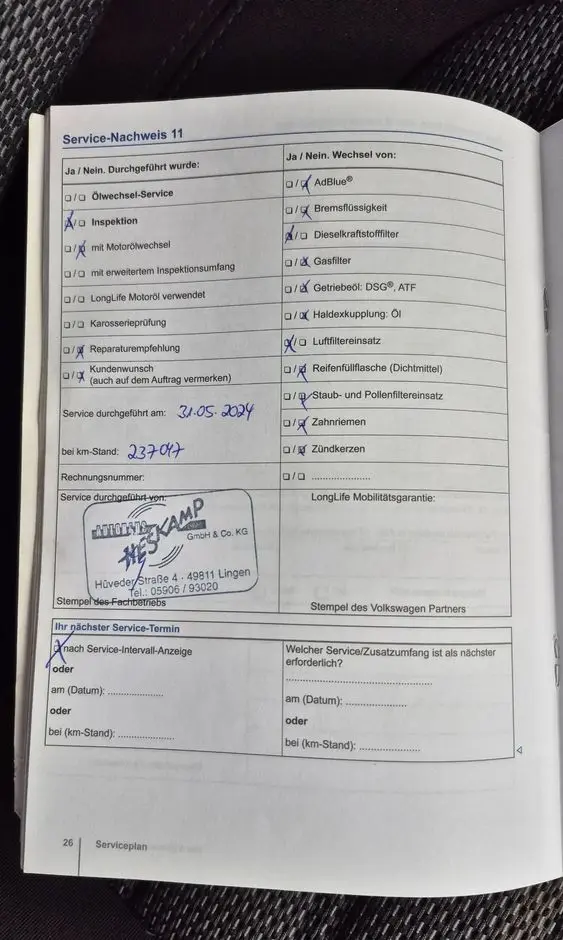 Service-Nachweis 11
Ja / Nein. Durchgeführt wurde:
Ölwechsel-Service
Inspektion
mit Motorölwechsel
mit erweitertem Inspektionsumfang
LongLife Motoröl verwendet
Karosserieprüfung
Reparaturempfehlung
Kundenwunsch
(auch auf dem Auftrag vermerken)
Service durchgeführt am: 31.05.2024
bei km-Stand: 237047
Rechnungsnummer:
Ja / Nein. Wechsel von:
AdBlue®
Bremsflüssigkeit
Dieselkraftstofffilter
Gasfilter
Getriebeöl: DSG®, ATF
Haldexkupplung: Öl
Luftfiltereinsatz
Reifenfüllflasche (Dichtmittel)
Staub- und Pollenfiltereinsatz
Zahnriemen
Zündkerzen
Service durchgeführt von:
HESKAMP
GmbH & Co. KG
Hüveder Straße 4 · 49811 Lingen
Tel.: 05906 / 93020
Stempel des Fachbetriebs
LongLife Mobilitätsgarantie:
Stempel des Volkswagen Partners
Ihr nächster Service-Termin
nach Service-Intervall-Anzeige
oder
am (Datum): ....................
oder
bei (km-Stand): ....................
Welcher Service/Zusatzumfang ist als nächster
erforderlich?
am (Datum): ....................
oder
bei (km-Stand): ....................
26
Serviceplan